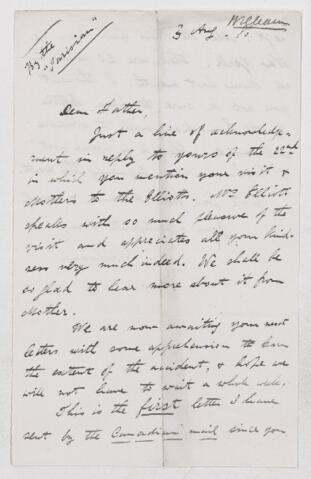 By the
"Parisian"
3 Aug.
Dear Father,
Just a line of acknowledge-
ment in reply to yours of the 22nd
in which you mention your visit &
Mother's to the Elliotts. Mrs Elliott
speaks with so much pleasure of the
visit and appreciates all your kind-
ness very much indeed. We shall be
so glad to hear more about it from
Mother.
We are now awaiting your next
letters with some apprehension to learn
the extent of the accident, & hope we
will not have to wait a whole week.
This is the first letter I have
sent by the Canadian mail since you